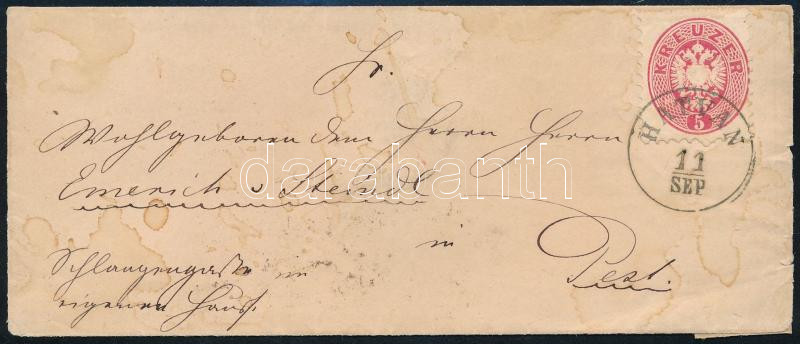 Sr.
KREUZER
5
HATVAN
11
SEP
Wohlgeboren dem Herrn Herrn
Emerich v Steindl
in
Pest.
Schlangengasse im
eigenen Haus.
darabanth